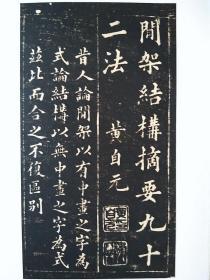 間架結構摘要九十
二法
黃自元
昔人論間架以有中畫之字為
式論結構以無中畫之字為式
茲比而合之不復區別